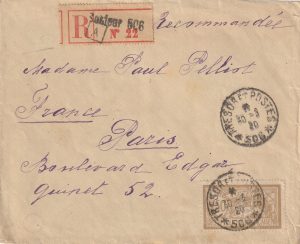 Secteur 506
R
A
N° 22
Recommandée
Madame Paul Pelliot
France
Paris
Boulevard Edgar
Quinet 52.
* TRESOR ET POSTES *
20
506
* TRESOR ET POSTES *
20
506